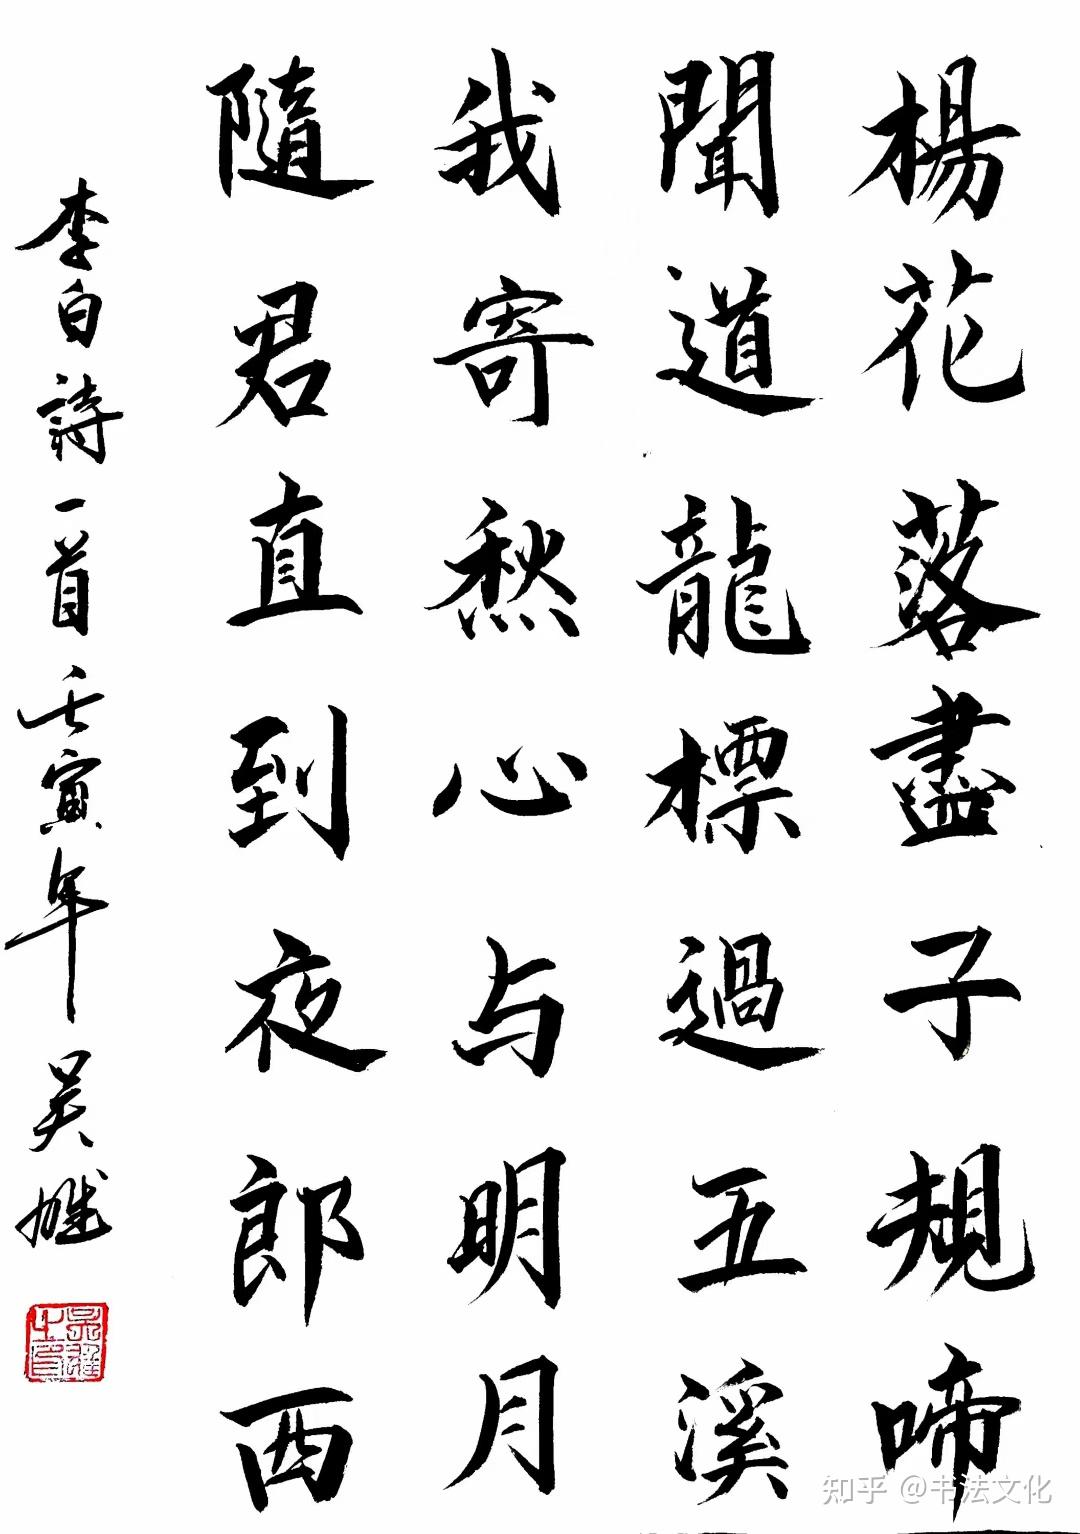 楊花落盡子規啼
聞道龍標過五溪
我寄愁心与明月
隨君直到夜郎西
李白詩一首壬寅年吴雄
吴雄之印
知乎 @书法文化